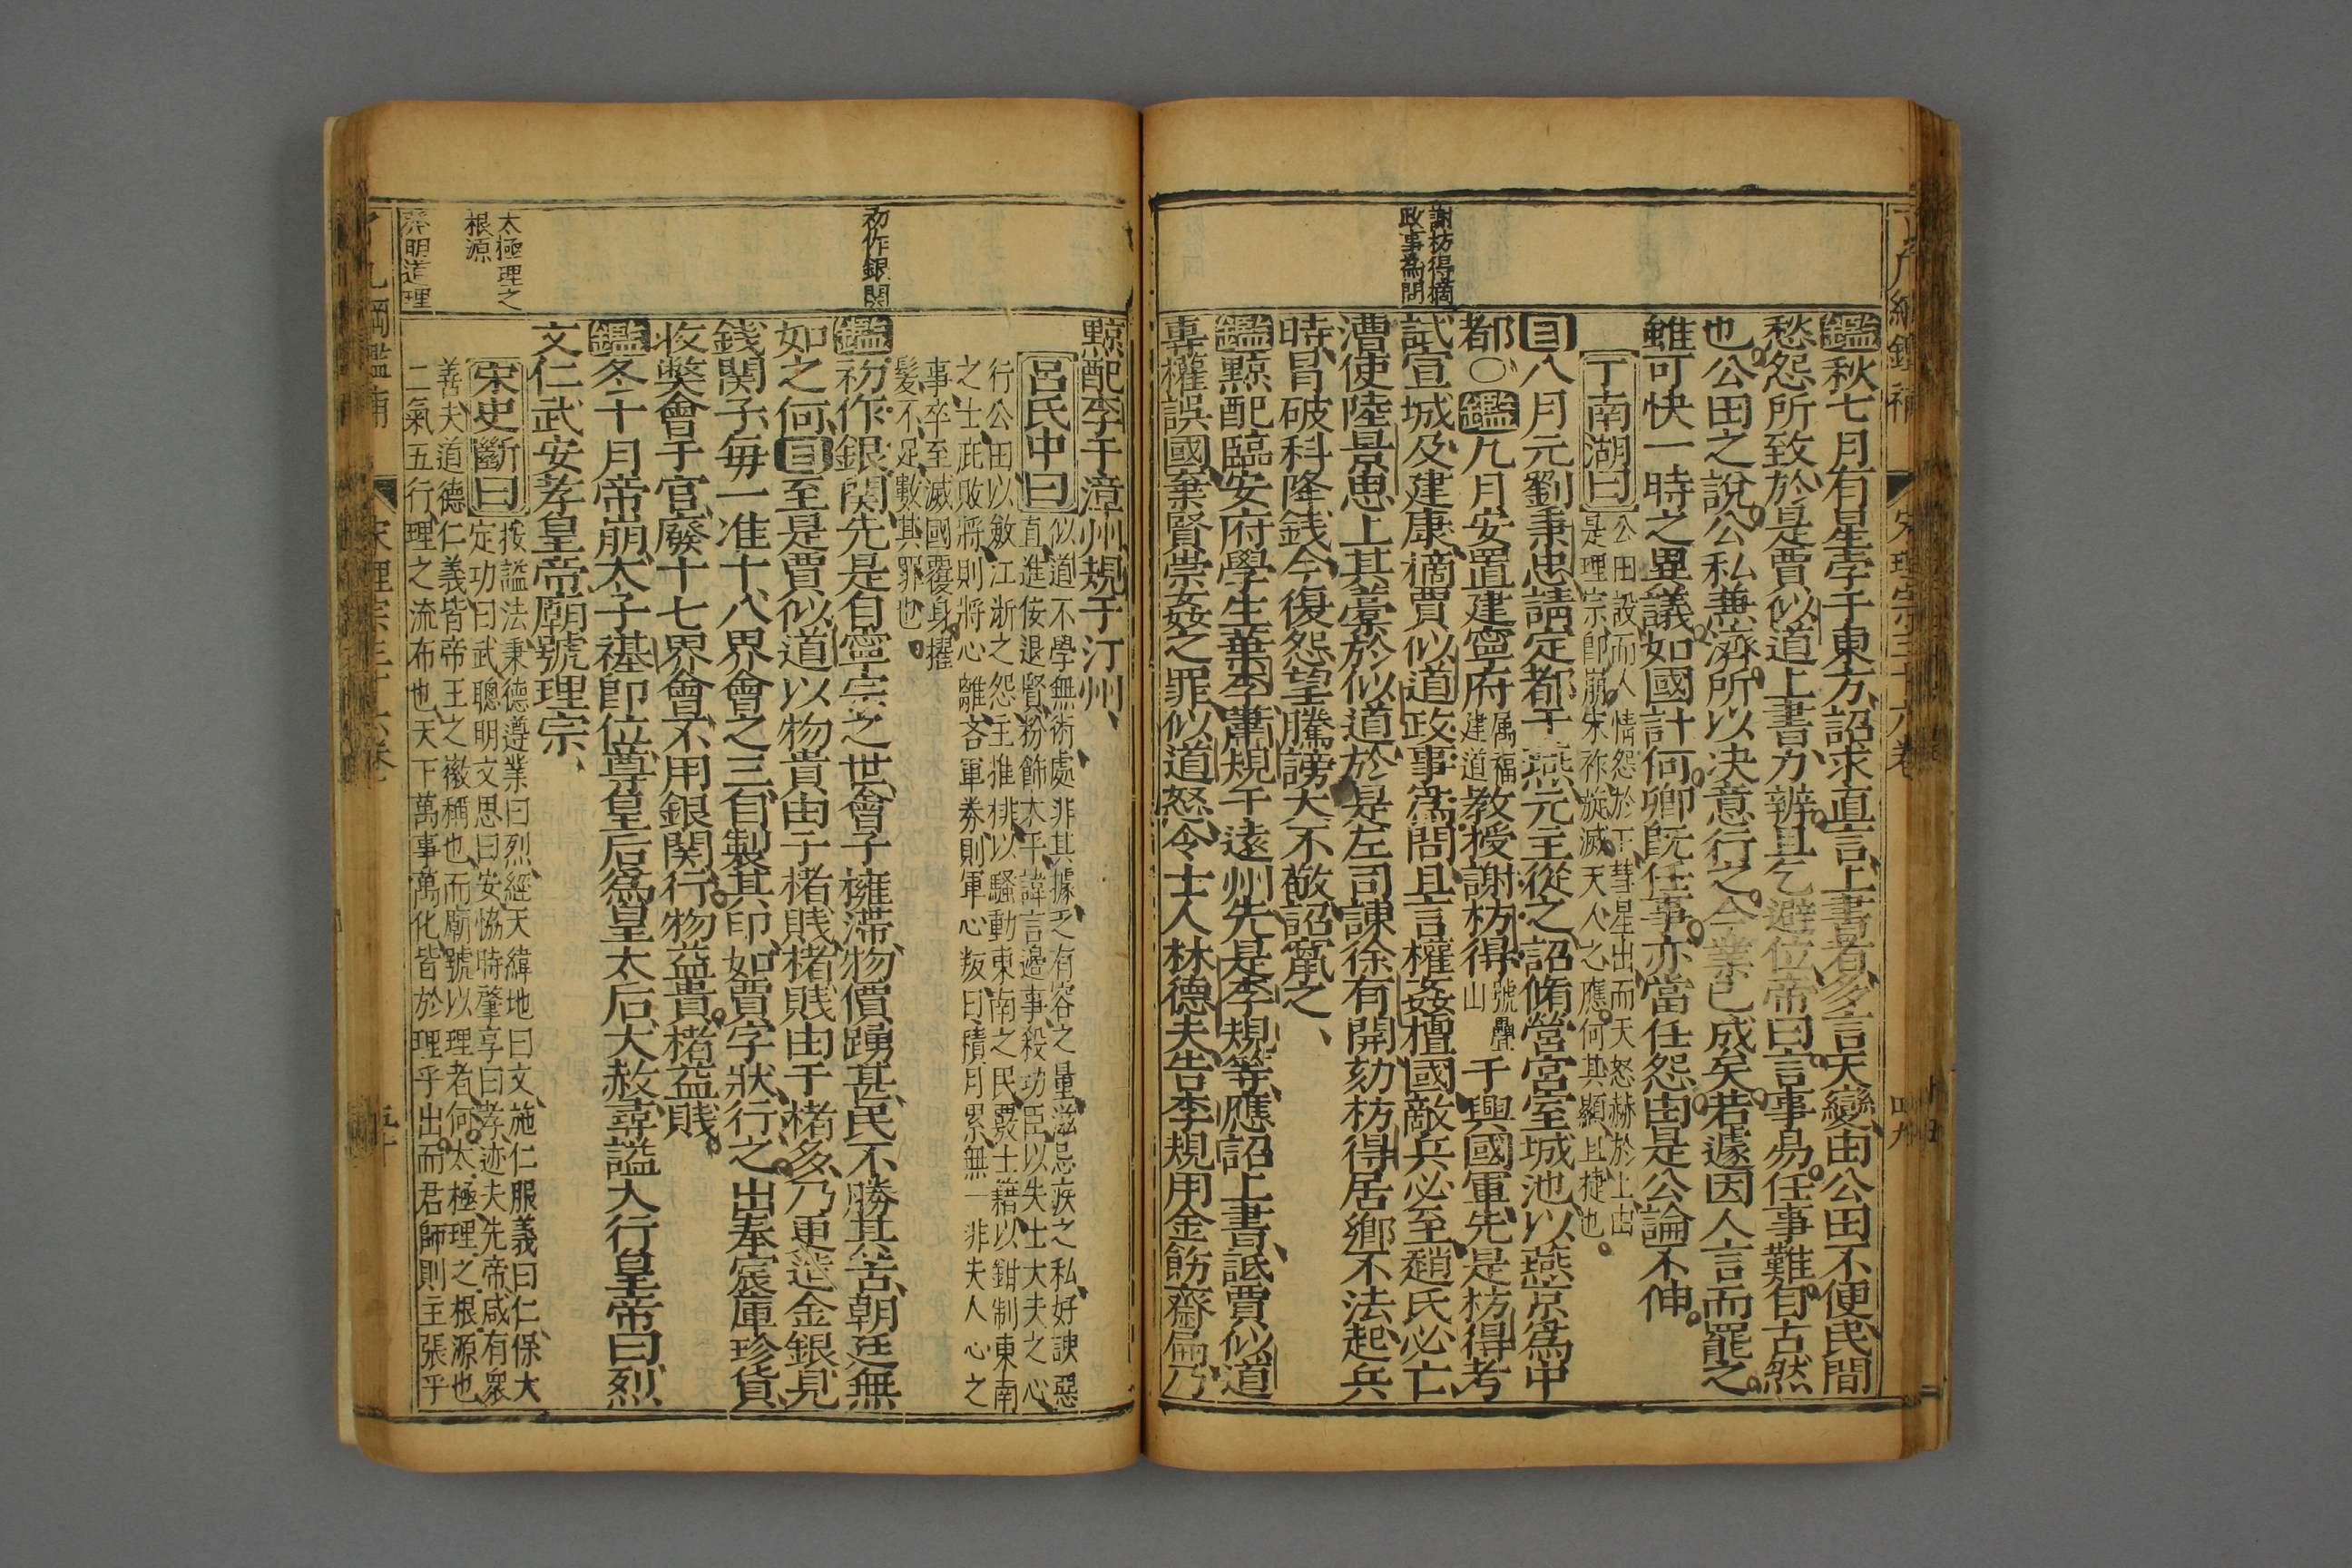 謝枋得摘
政事為問
鑑秋七月有星孛于東方詔求直言上書者多言天變由公田不便民間
愁怨所致於是賈似道上書力辨且乞避位帝曰言事易任事難自古然
也公田之說公私兼濟所以决意行之今業已成矣若遽因人言而罷之
雖可快一時之異議如國計何卿既任事亦當任怨由是公論不伸
丁南湖曰
公田設而人情怨於下彗星出而天怒赫於上由
是理宗卽崩宋祚旋滅天人之應何其顯且捷也
目八月元劉秉忠請定都于燕元主從之詔脩營宮室城池以燕京為中
都○鑑九月安置建寧府属福建道教授謝枋得號疊山于興國軍先是枋得考
試宣城及建康摘賈似道政事為問且言權姦擅國敵兵必至趙氏必亡
漕使陸景思上其藁於似道於是左司諫徐有開劾枋得居鄉不法起兵
時冒破科降錢今復怨望騰謗大不敬詔竄之
鑑黥配臨安府學生葉李蕭規于遠州先是李規等應詔上書詆賈似道
專權誤國棄賢崇姦之罪似道怒令士人林德夫告李規用金飭齋扁乃
宋理宗三十六卷
初作銀関
太極理之
根源
黥配李于漳州規于汀州
呂氏中曰
似道不學無術處非其據乏有容之量滋忌疾之私好諛惡
直進佞退賢粉飾太平諱言邊事殺功臣以失士大夫之心
行公田以斂江浙之怨主推排以騷動東南之民覈士籍以鉗制東南
之士庇敗將則將心離吝軍券則軍心叛日積月累無一非失人心之
事卒至滅國覆身擢
髮不足數其罪也
鑑初作銀関先是自寧宗之世會子擁滯物價踴甚民不勝其苦朝廷無
如之何目至是賈似道以物貴由于楮賤楮賤由于楮多乃更造金銀見
錢関子每一准十八界會之三自製其印如賈字狀行之出奉宸庫珍貨
收獘會于官廢十七界會不用銀関行物益貴楮益賤
鑑冬十月帝崩太子禥卽位尊皇后為皇太后大赦尋謚大行皇帝曰烈
文仁武安孝皇帝廟號理宗
宋史斷曰
按謚法秉德遵業曰烈經天緯地曰文施仁服義曰仁保大
定功曰武聰明文思曰安恊時肇享曰孝迹夫先帝咸有衆
善夫道德仁義皆帝王之徽稱也而廟號以理者何太極理之根源也
二氣五行理之流布也天下萬事萬化皆於理乎出而君師則主張乎